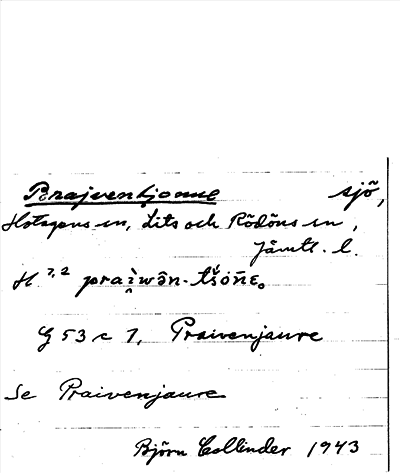 Prajventjonne sjö,
Hotagens sn, Lits och Rödöns sn,
Jämtl. l.
H 7,2 prai̯wən-tšōnɛ。
G 53 c 7, Praivenjaure
Se Praivenjaure
Björn Collinder 1943